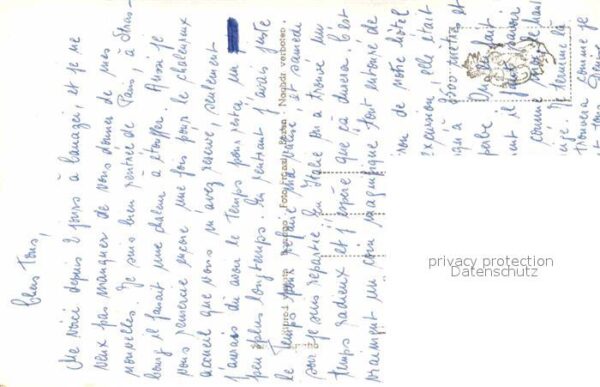 Chers Tous,
Me voici depuis 2 jours à Canazei, et je ne
veux pas manquer de vous donner de mes
nouvelles. Je suis bien rentrée de Paris, à Stras-
bourg il faisait une chaleur à étouffer. Aussi je
vous remercie encore une fois pour le chaleureux
accueil que vous m'avez réservé, seulement
j'aurais dû avoir le temps pour rester un
peu plus longtemps. En rentrant j'avais juste
le temps pour refaire ma valise, et samedi
soir je suis repartie. En Italie on a trouvé un
temps radieux et j'espère que ça durera. C'est
vraiment un coin magnifique tout entouré de
de notre hôtel
excursion, elle était
qu'à 2500 mètres et
On a fait
ent il faut
comme
Je termine là
trouvera comme je
et tous
Nachdr. verboten.
privacy protection
Datenschutz